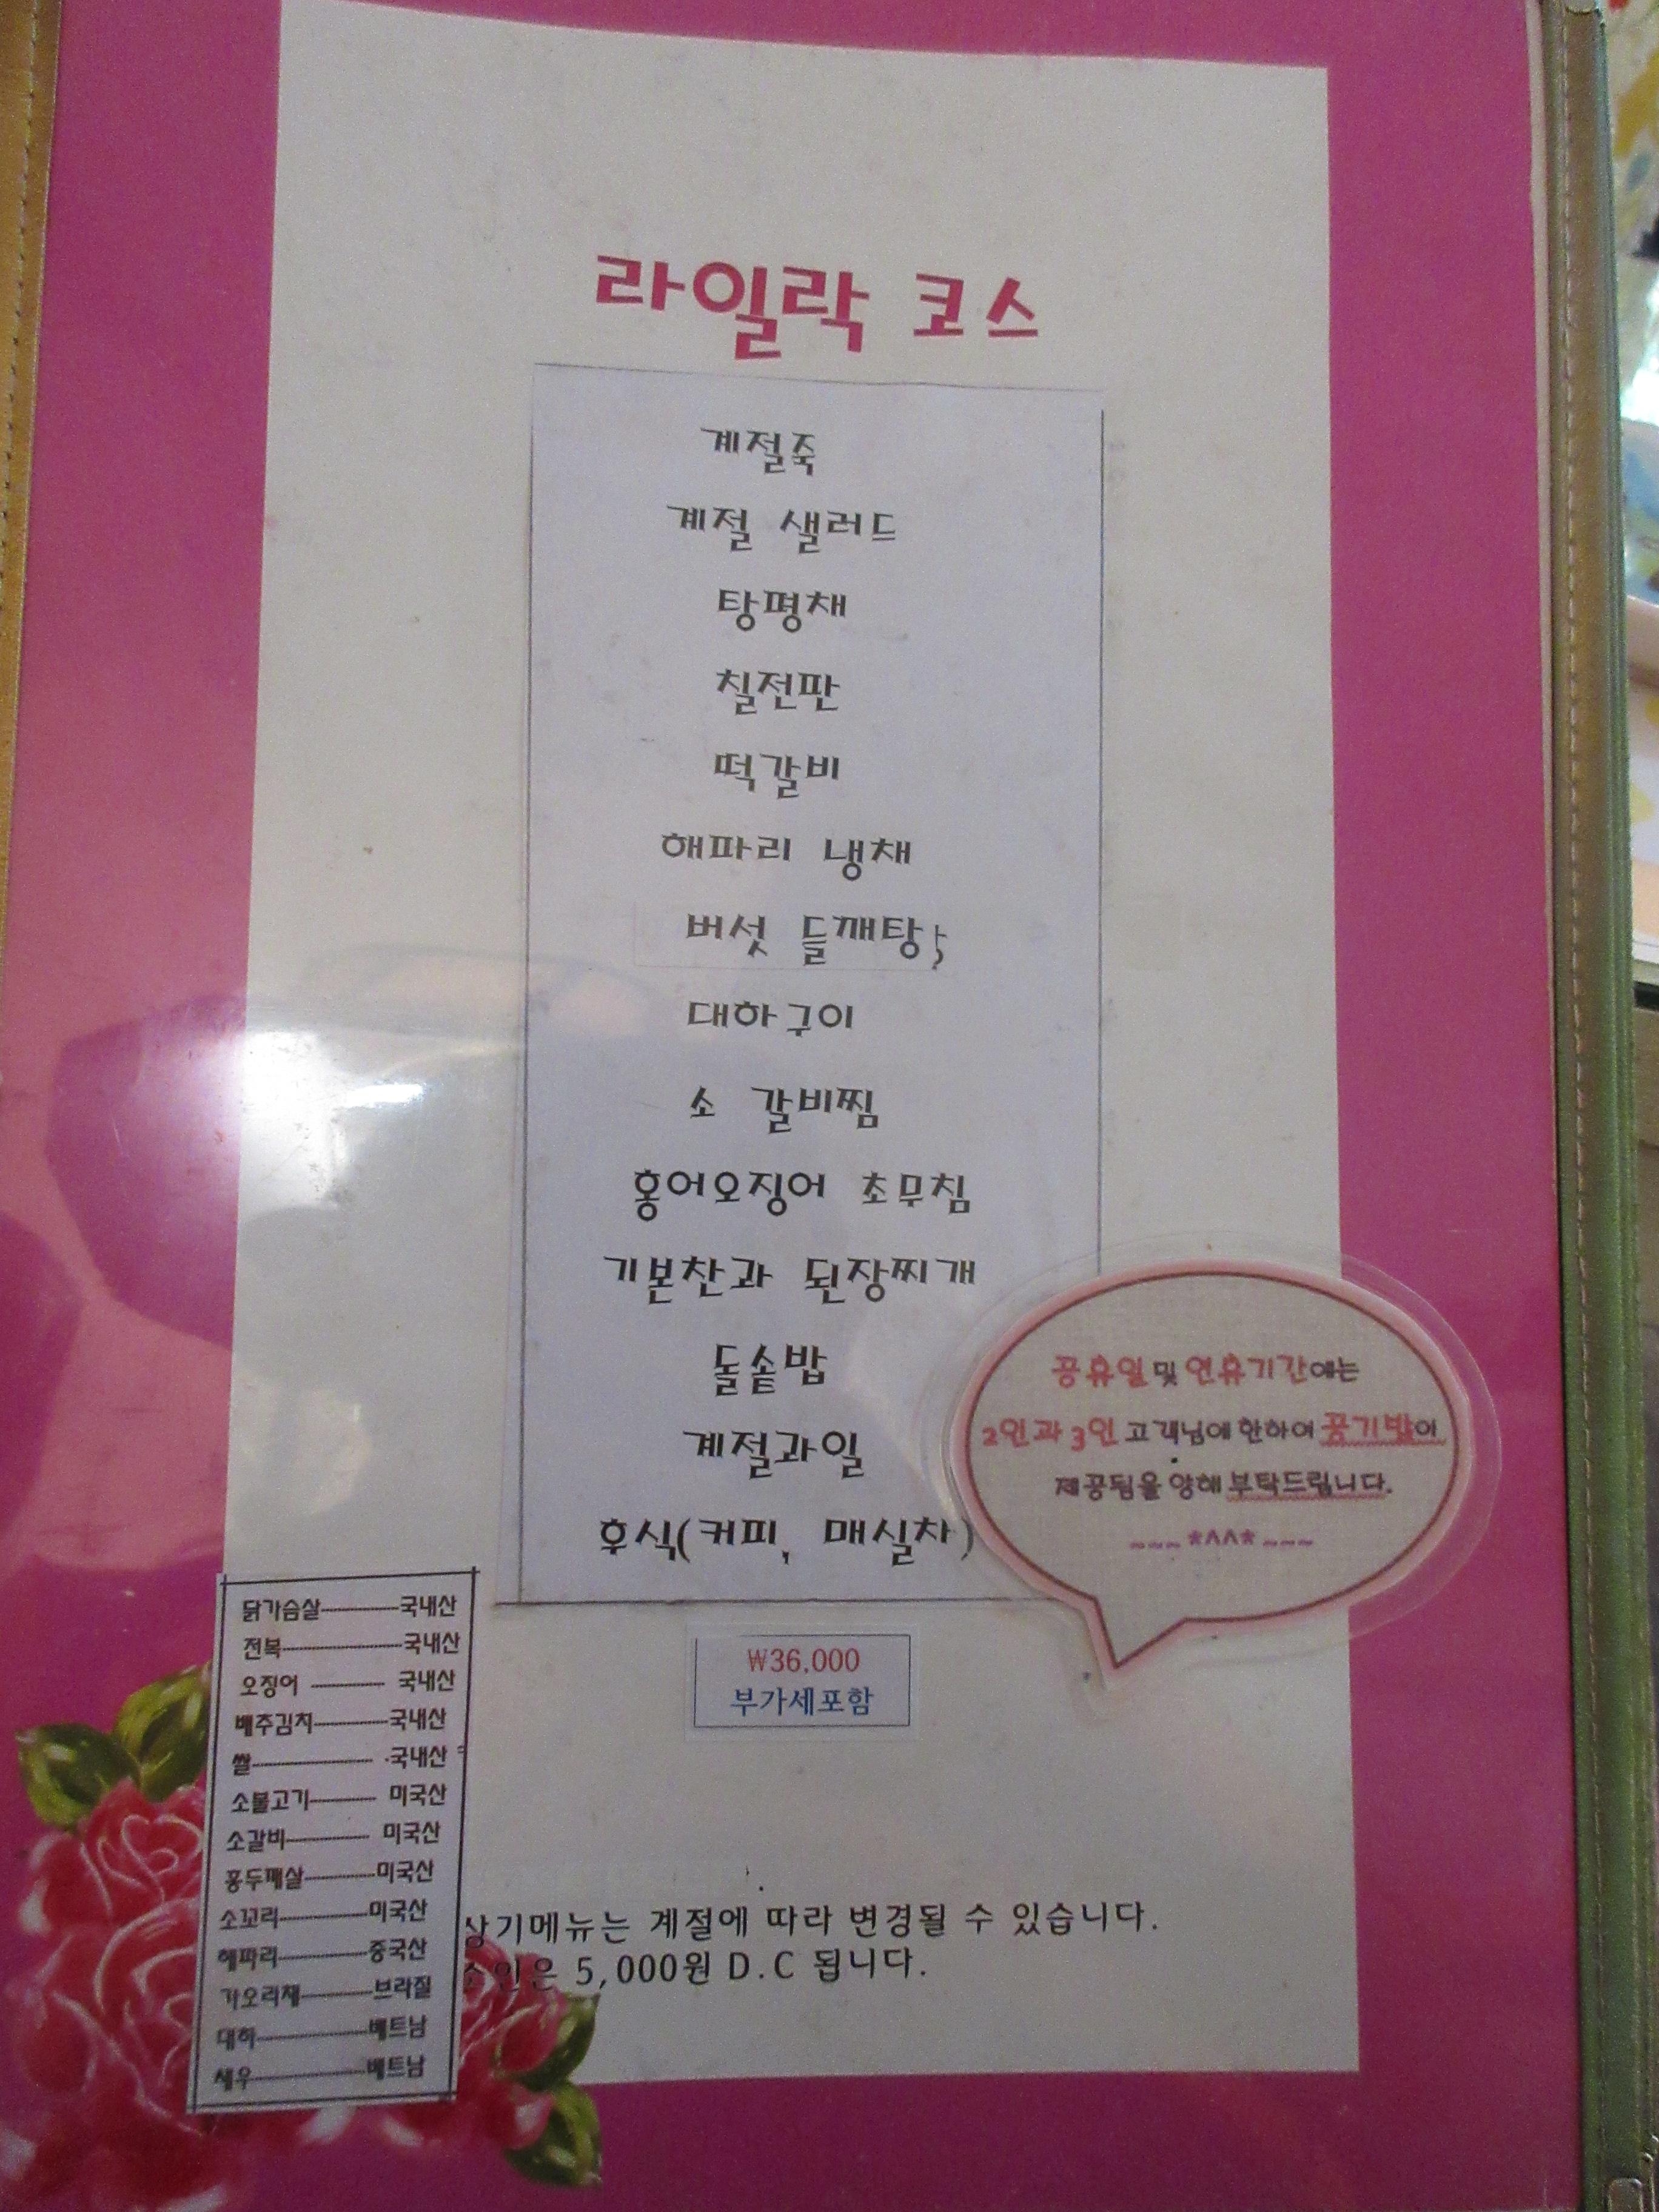 라일락 코스
계절죽
계절 샐러드
탕평채
칠전판
떡갈비
해파리 냉채
버섯 들깨탕
대하구이
소 갈비찜
홍어오징어 초무침
기본찬과 된장찌개
돌솥밥
계절과일
후식(커피, 매실차)
공휴일 및 연휴기간에는
2인과 3인 고객님에 한하여 공기밥이
제공됨을 양해 부탁드립니다.
~~~*^^*~~~
₩36,000
부가세포함
닭가슴살----------국내산
전복----------국내산
오징어 ---------- 국내산
배추김치----------국내산
쌀---------- 국내산
소불고기---------- 미국산
소갈비---------- 미국산
홍두깨살----------미국산
소꼬리----------미국산
해파리----------중국산
가오리채----------브라질
대하----------베트남
새우----------베트남
상기메뉴는 계절에 따라 변경될 수 있습니다.
소인은 5,000원 D.C 됩니다.